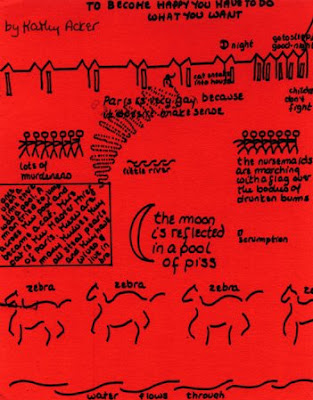 TO BECOME HAPPY YOU HAVE TO DO
WHAT YOU WANT
by Kathy Acker
night
go to sleep
good-night
cat sneaks
into house
Paris is very gay, because
it doesn't make sense
children
don't
fight
lots of
murderers
little river
the nursemaids
are marching
with a flag over
the bodies of
drunken bums
the moon
is reflected
in a pool
of piss
scrumption
zebra
zebra
zebra
zebra
water flows through